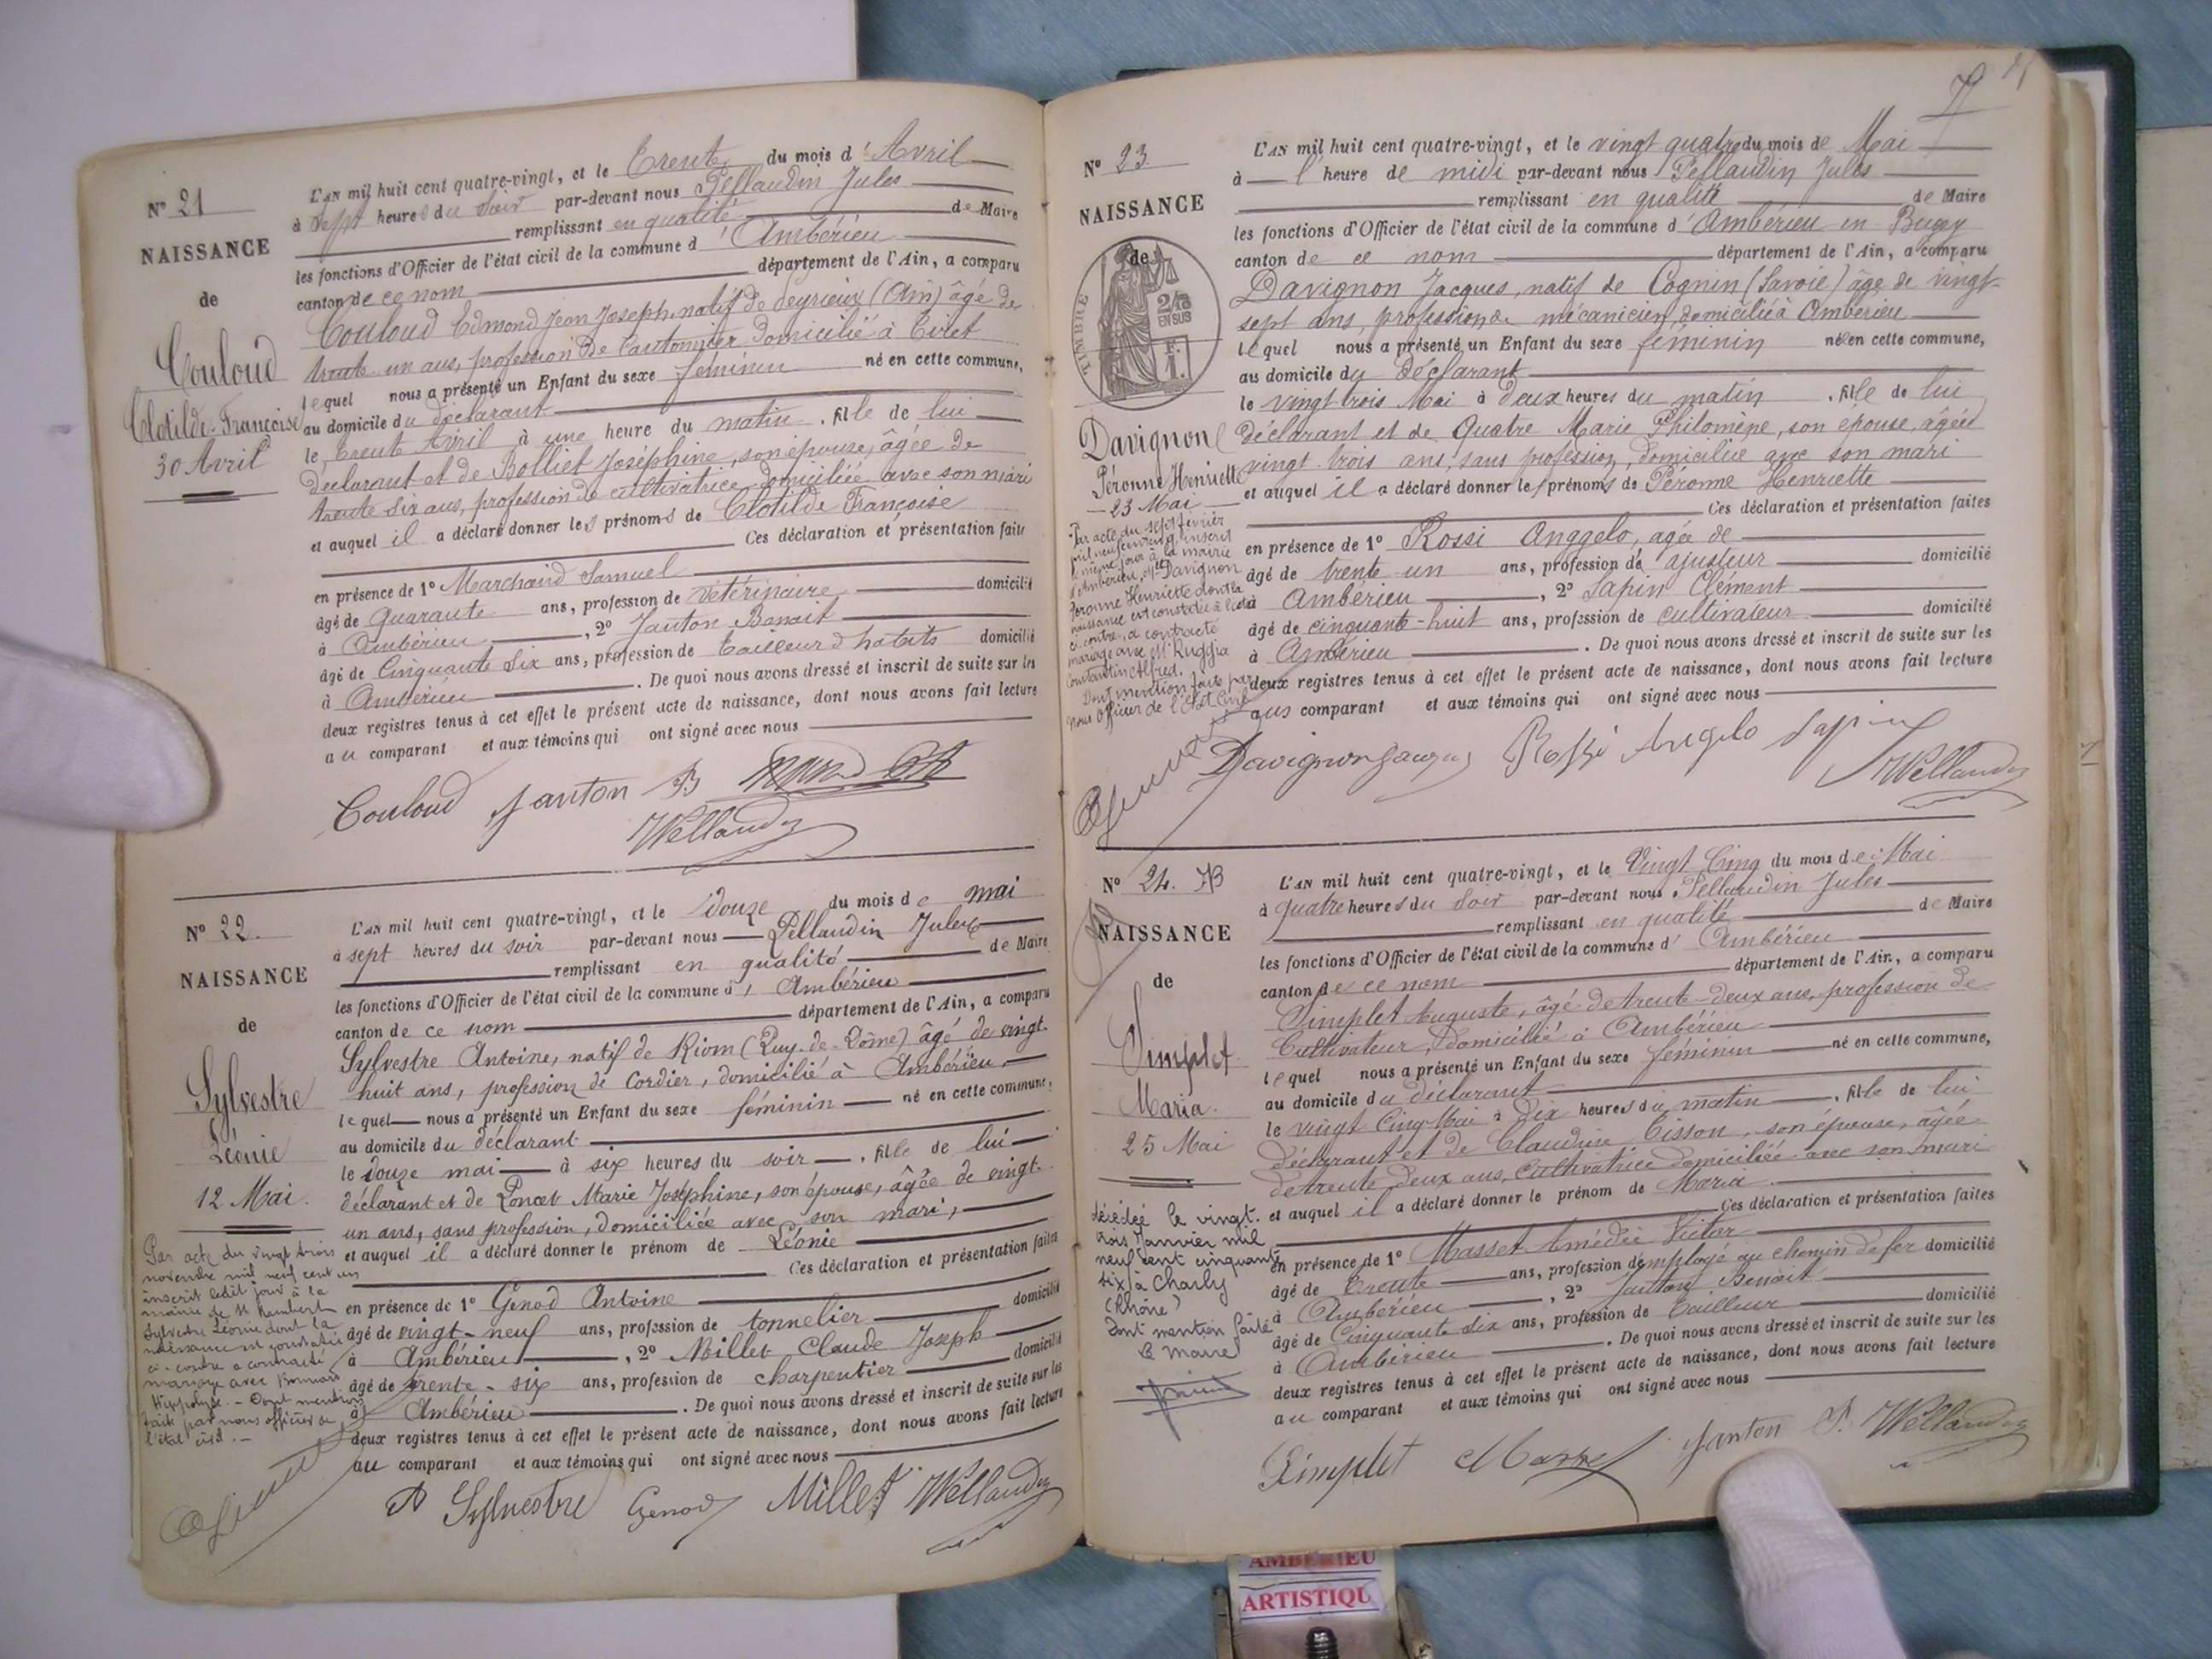 N° 21
NAISSANCE
de
Couloud
Clotilde-Françoise
30 Avril
L'AN mil huit cent quatre-vingt, et le Trente du mois d'Avril
à sept heures du soir par-devant nous Pellaudin Jules
remplissant en qualité de Maire
les fonctions d'Officier de l'état civil de la commune d'Ambérieu
canton de ce nom département de l'Ain, a comparu
Couloud Edmond Jean Joseph, natif de Seyrieux (Ain) âgé de
trente un ans, profession de Cantonnier domicilié à Tiret
lequel nous a présenté un Enfant du sexe féminin né en cette commune,
au domicile du déclarant
le trente Avril à une heure du matin, fille de lui
déclarant et de Bolliet Joséphine, son épouse, âgée de
trente six ans, profession de cultivatrice domiciliée avec son mari
et auquel il a déclaré donner les prénoms de Clotilde Françoise
Ces déclaration et présentation faites
en présence de 1° Marchand Samuel
âgé de quarante ans, profession de vétérinaire domicilié
à Ambérieu, 2° Janton Benoit
âgé de Cinquante six ans, profession de tailleur d'habits domicilié
à Ambérieu. De quoi nous avons dressé et inscrit de suite sur les
deux registres tenus à cet effet le présent acte de naissance, dont nous avons fait lecture
au comparant et aux témoins qui ont signé avec nous
Couloud Janton B
Pellaudin
N° 22.
NAISSANCE
de
Sylvestre
Léonie
12 Mai.
Par acte du vingt trois
novembre mil neuf cent un
inscrit ledit jour à la
mairie de St Rambert
Sylvestre Léonie dont la
naissance est constatée
ci-contre a contracté
mariage avec
Hippolyte. - Dont mention
faite par nous officier de
l'état civil. -
L'AN mil huit cent quatre-vingt, et le douze du mois de mai
à sept heures du soir par-devant nous Pellaudin Jules
remplissant en qualité de Maire
les fonctions d'Officier de l'état civil de la commune d'Ambérieu
canton de ce nom département de l'Ain, a comparu
Sylvestre Antoine, natif de Riom (Puy-de-Dôme) âgé de vingt-
huit ans, profession de Cordier, domicilié à Ambérieu
lequel nous a présenté un Enfant du sexe féminin né en cette commune,
au domicile du déclarant
le douze mai à six heures du soir, fille de lui
déclarant et de Poncet Marie Joséphine, son épouse, âgée de vingt-
un ans, sans profession, domiciliée avec son mari,
et auquel il a déclaré donner le prénom de Léonie
Ces déclaration et présentation faites
en présence de 1° Genod Antoine
âgé de vingt-neuf ans, profession de tonnelier domicilié
à Ambérieu, 2° Millet Claude Joseph
âgé de trente-six ans, profession de charpentier domicilié
à Ambérieu. De quoi nous avons dressé et inscrit de suite sur les
deux registres tenus à cet effet le présent acte de naissance, dont nous avons fait lecture
au comparant et aux témoins qui ont signé avec nous
A Sylvestre Genod Millet Pellaudin
N° 23.
NAISSANCE
de
TIMBRE
2/10 EN SUS
F. 1.
Davignon
Péronne Henriette
23 Mai
Par acte du sept février
mil neuf cent cinq, inscrit
le même jour à la mairie
d'Ambérieu, Mlle Davignon
Péronne Henriette dont la
naissance est constatée
ci-contre, a contracté
mariage avec Mr Ruggia
Constantin Alfred.
Dont mention faite par
nous Officier de l'Etat Civil
L'AN mil huit cent quatre-vingt, et le vingt quatre du mois de Mai
à l'heure de midi par-devant nous Pellaudin Jules
remplissant en qualité de Maire
les fonctions d'Officier de l'état civil de la commune d'Ambérieu en Bugey
canton de ce nom département de l'Ain, a comparu
Davignon Jacques, natif de Cognin (Savoie) âgé de vingt-
sept ans, profession de mécanicien, domicilié à Ambérieu
lequel nous a présenté un Enfant du sexe féminin née en cette commune,
au domicile du déclarant
le vingt trois Mai à deux heures du matin, fille de lui
déclarant et de Quatre Marie Philomène, son épouse, âgée
vingt trois ans, sans profession, domiciliée avec son mari
et auquel il a déclaré donner les prénoms de Péronne Henriette
Ces déclaration et présentation faites
en présence de 1° Rossi Anggelo, agée de
âgé de trente-un ans, profession de ajusteur domicilié
à Ambérieu, 2° Sapin Clément
âgé de cinquante-huit ans, profession de cultivateur domicilié
à Ambérieu. De quoi nous avons dressé et inscrit de suite sur les
deux registres tenus à cet effet le présent acte de naissance, dont nous avons fait lecture
aus comparant et aux témoins qui ont signé avec nous
Davignon Jacques Rossi Angelo Sapin
Pellaudin
N° 24. B
NAISSANCE
de
Simplet
Maria.
25 Mai
décédée le vingt-
trois Janvier mil
neuf cent cinquante
six à Charly
(Rhône)
Dont mention faite
Le Maire
L'AN mil huit cent quatre-vingt, et le Vingt Cinq du mois de Mai
à quatre heures du soir par-devant nous Pellaudin Jules
remplissant en qualité de Maire
les fonctions d'Officier de l'état civil de la commune d'Ambérieu
canton de ce nom département de l'Ain, a comparu
Simplet Auguste, âgé de trente-deux ans, profession de
Cultivateur, domicilié à Ambérieu
lequel nous a présenté un Enfant du sexe féminin né en cette commune,
au domicile du déclarant
le vingt Cinq Mai à Dix heures du matin, fille de lui
déclarant et de Claudine Tisson, son épouse, âgée
de trente deux ans, cultivatrice domiciliée avec son mari
et auquel il a déclaré donner le prénom de Maria
Ces déclaration et présentation faites
en présence de 1° Masset Amédée Victor
âgé de trente ans, profession d'employé au chemin de fer domicilié
à Ambérieu, 2° Janton Benoit
âgé de Cinquante six ans, profession de tailleur domicilié
à Ambérieu. De quoi nous avons dressé et inscrit de suite sur les
deux registres tenus à cet effet le présent acte de naissance, dont nous avons fait lecture
au comparant et aux témoins qui ont signé avec nous
Simplet Masset Janton B. Pellaudin
AMBERIEU
ARTISTIQU